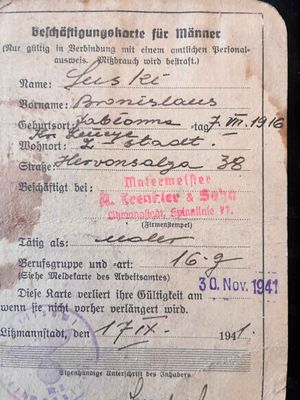 Beschäftigungskarte für Männer
(Nur gültig in Verbindung mit einem amtlichen Personal-
ausweis. Mißbrauch wird bestraft.)
Name: Suski
Vorname: Bronislaus
Geburtsort: tag 7. VII. 1916
Wohnort: L-stadt.
Straße: 38
Beschäftigt bei Malermeister
& Sohn
Litzmannstadt, Spinnlinie
(Firmenstempel)
Tätig als: Maler
Berufsgruppe und -art: 16-g
(Siehe Meldekarte des Arbeitsamtes)
30. Nov. 1941
Diese Karte verliert ihre Gültigkeit am
wenn sie nicht vorher verlängert wird.
Litzmannstadt, den 17 IX. 1941.
Eigenhändige Unterschrift des Inhabers